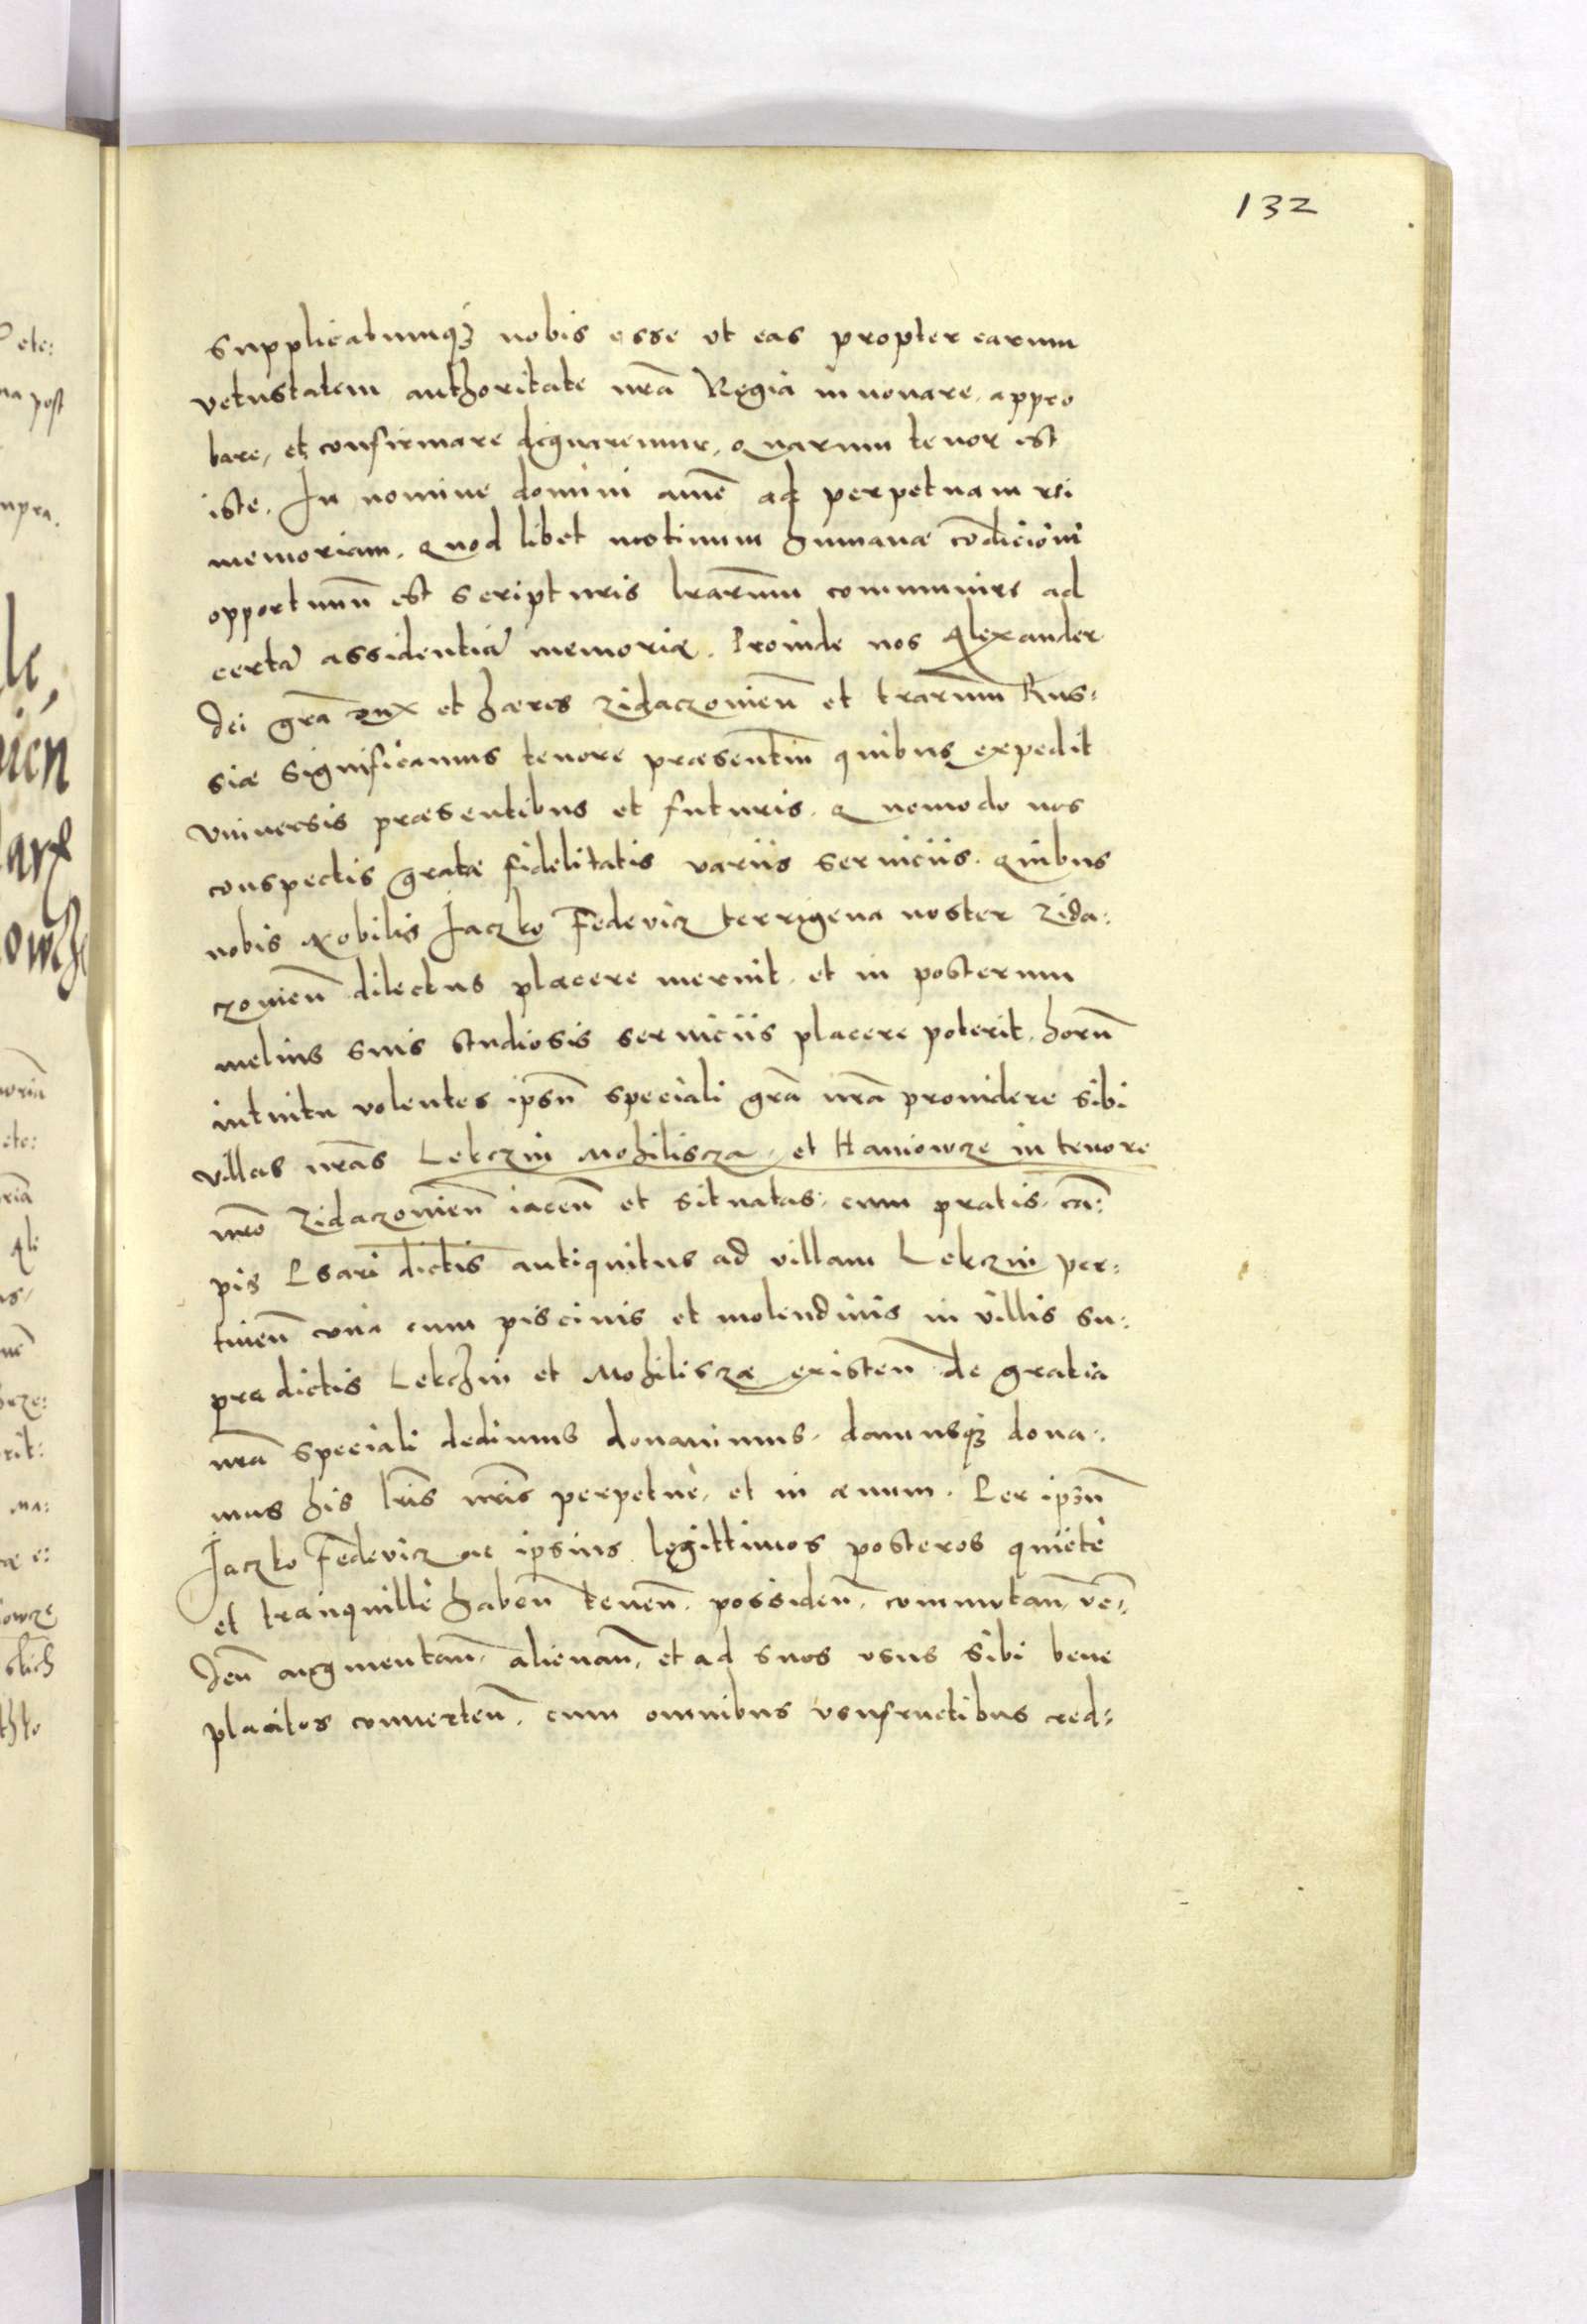 132
supplicatumqꝫ nobis esse vt eas propter earum
vetustatem authoritate nrã Regia innouare, appro
bare, et confirmare dignaremur, Quarum tenor est
iste. In nomine domini amẽ ad perpetuam rei
memoriam. Quod libet motiuum humanæ cõdicioni
opportunũ est scripturis lrarũm communire ad
certã assidentiã memoriæ. Proinde nos Alexander
Dei grã Dux et hæres Zidaczouieñ et trarũm Rus:
siæ Significamus tenore præsentiũ quibus expedit
vniuersis præsentibus et futuris. Quomodo nos
conspectis gratæ fidelitatis variis seruiciis. Quibus
nobis Nobilis Jaczko Fedevicz terrigena noster Zida:
czouieñ dilectus placere meruit, et in posterum
melius suis studiosis seruiciis placere poterit, horũ
intuitu volentes ipsũ speciali grã nrã prouidere sibi
villas nrãs Lekczin Mohiliscza, et Haniowcze in tenore
nrõ Zidaczouieñ iaceñ et situatas, cum pratis, cã:
pis Lsari dictis antiquitus ad villam Lekczin per:
tineñ vnà cum piscinis et molendinis in villis su:
prædictis Lekchin et Mohiliscza existeñ de gratia
nrã speciali dedimus donauimus, damusqꝫ dona:
mus his lrĩs nrĩs perpetuè, et in æuum. Per ipsũ
Jaczko Fedevicz ac ipsius legittimos posteros quietè
et tranquillè habeñ teneñ, possideñ, commutañ, ve:
deñ augmentañ, alienañ, et ad suos vsus sibi bene
placitos conuerteñ, cum omnibus vsufructibus red: